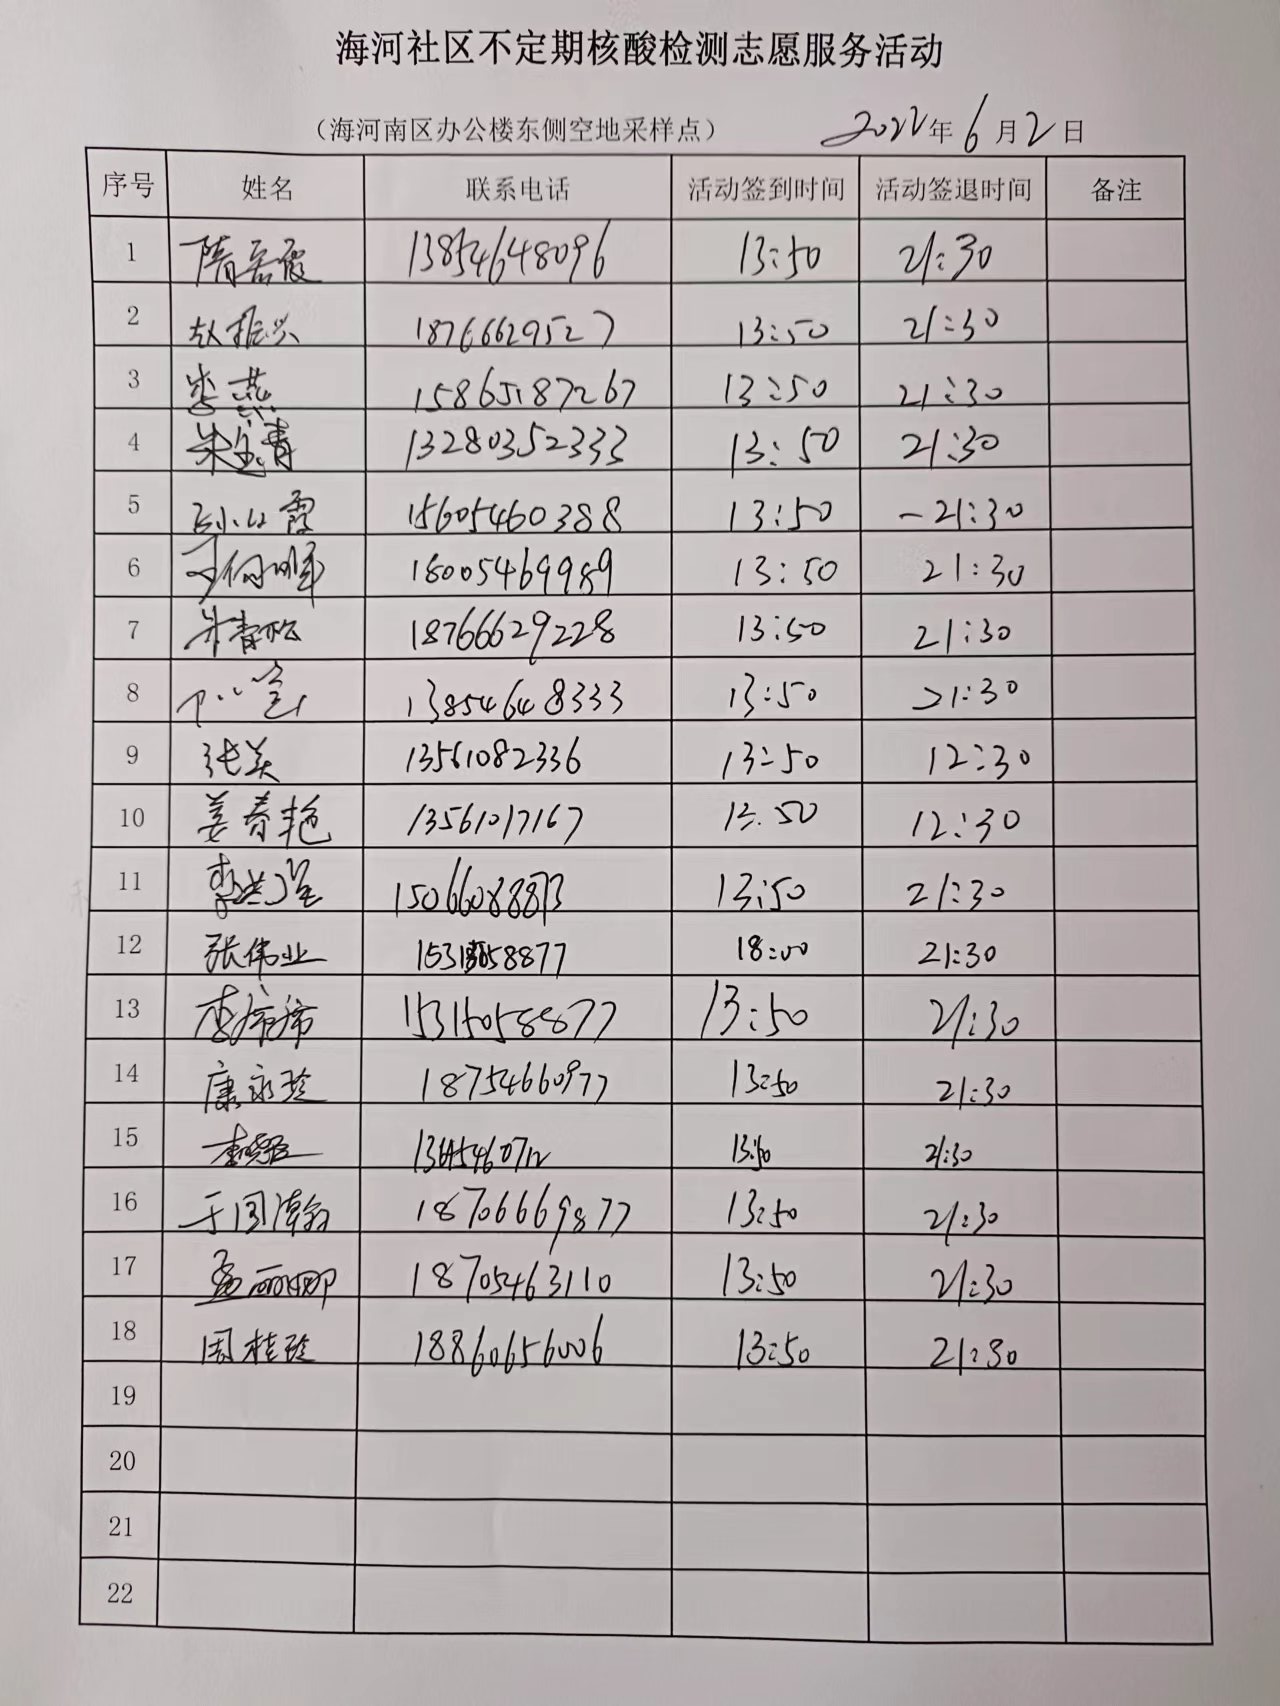 海河社区不定期核酸检测志愿服务活动
（海河南区办公楼东侧空地采样点） 2022年6月2日
序号 姓名 联系电话 活动签到时间 活动签退时间 备注
1 隋岳霞 13854648096 13:50 21:30
2 赵振兴 18766629527 13:50 21:30
3 李燕 15865187267 13:50 21:30
4 朱宝青 13280352333 13:50 21:30
5 15605460388 13:50 -21:30
6 18005469989 13:50 21:30
7 18766629228 13:50 21:30
8 13854648333 13:50 21:30
9 张美 13561082336 13:50 12:30
10 姜春艳 13561017167 13:50 12:30
11 15066088873 13:50 21:30
12 张伟业 18:00 21:30
13 李席席 15315058877 13:50 21:30
14 康永珍 18754660977 13:50 21:30
15 13:50 21:30
16 于国瀚 18706669877 13:50 21:30
17 孟丽娜 18705463110 13:50 21:30
18 周桂珍 18860656006 13:50 21:30
19
20
21
22